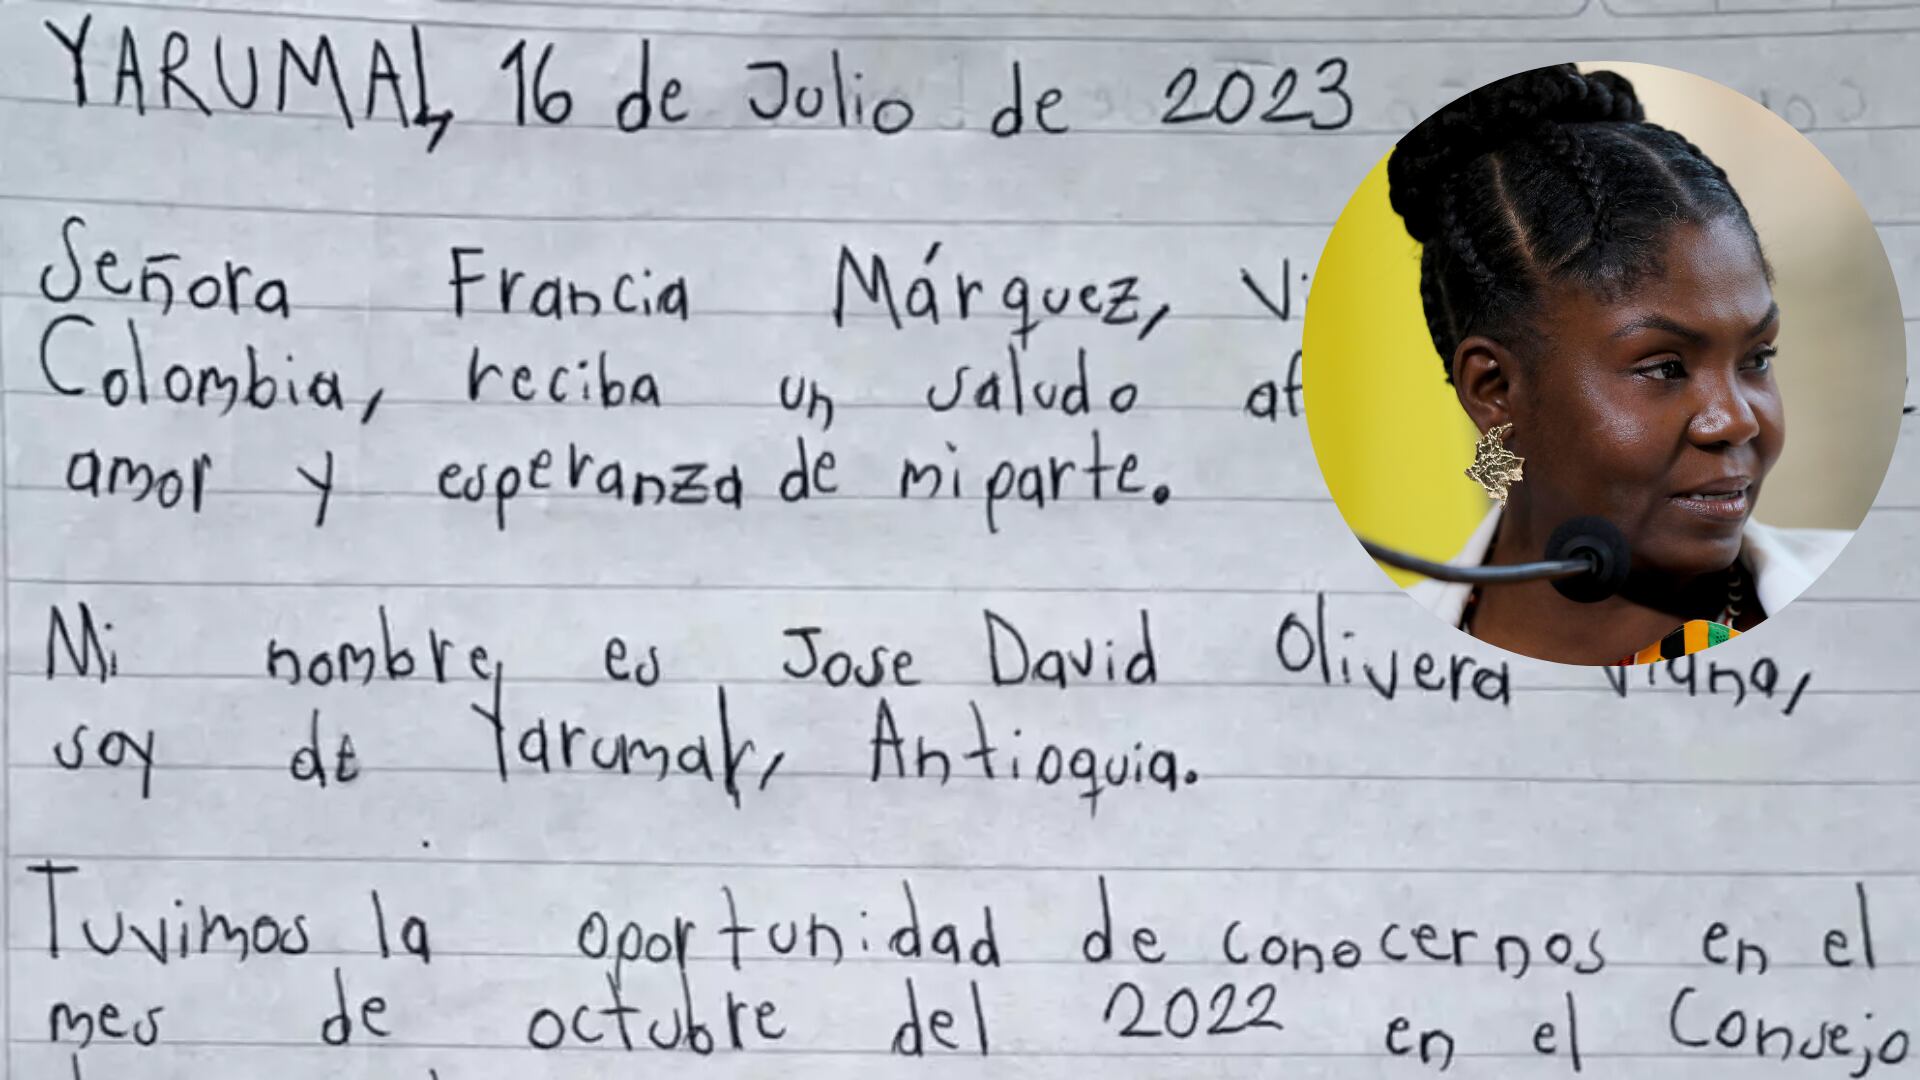 YARUMAL, 16 de Julio de 2023
Señora Francia Márquez,
Colombia, reciba un saludo
amor y esperanza de mi parte.
Mi nombre, es Jose David Olivera Viana,
soy de Yarumal, Antioquia.
Tuvimos la oportunidad de conocernos en el
mes de octubre del 2022 en el Consejo